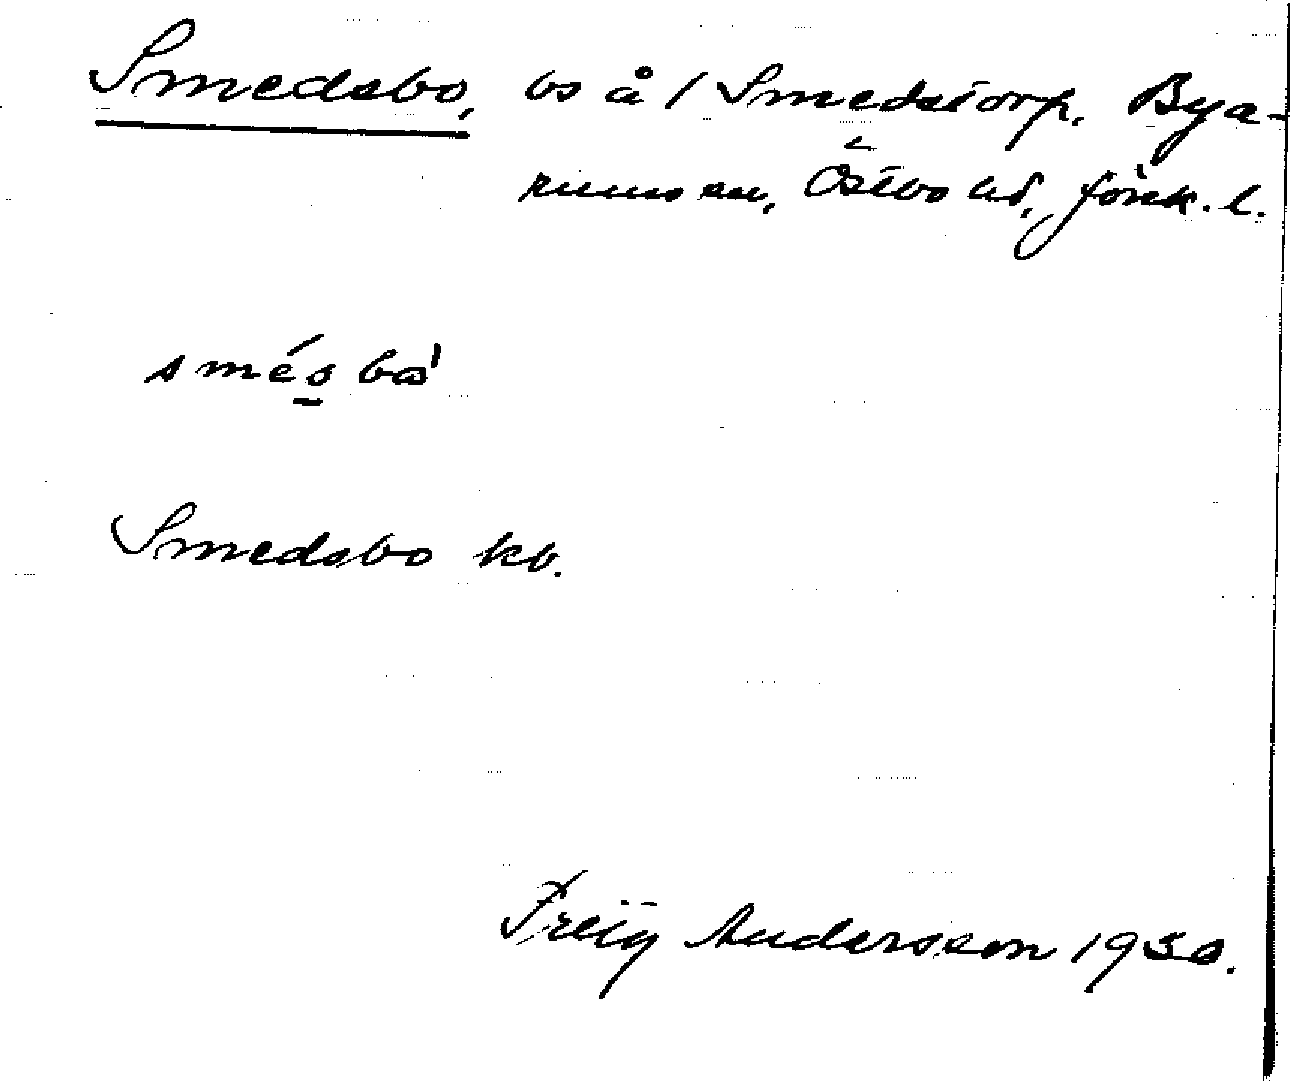 Smedsbo, bs å 1 Smedstorp. Bya-
rums sn, Östbo hd, Jönk. l.
smésbo'
Smedsbo kb.
Andersson 1930.